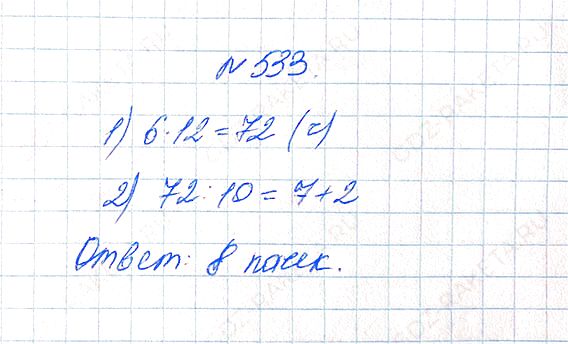 N 533.
1) 6·12=72 (г)
2) 72:10=7+2
Ответ: 8 пачек.